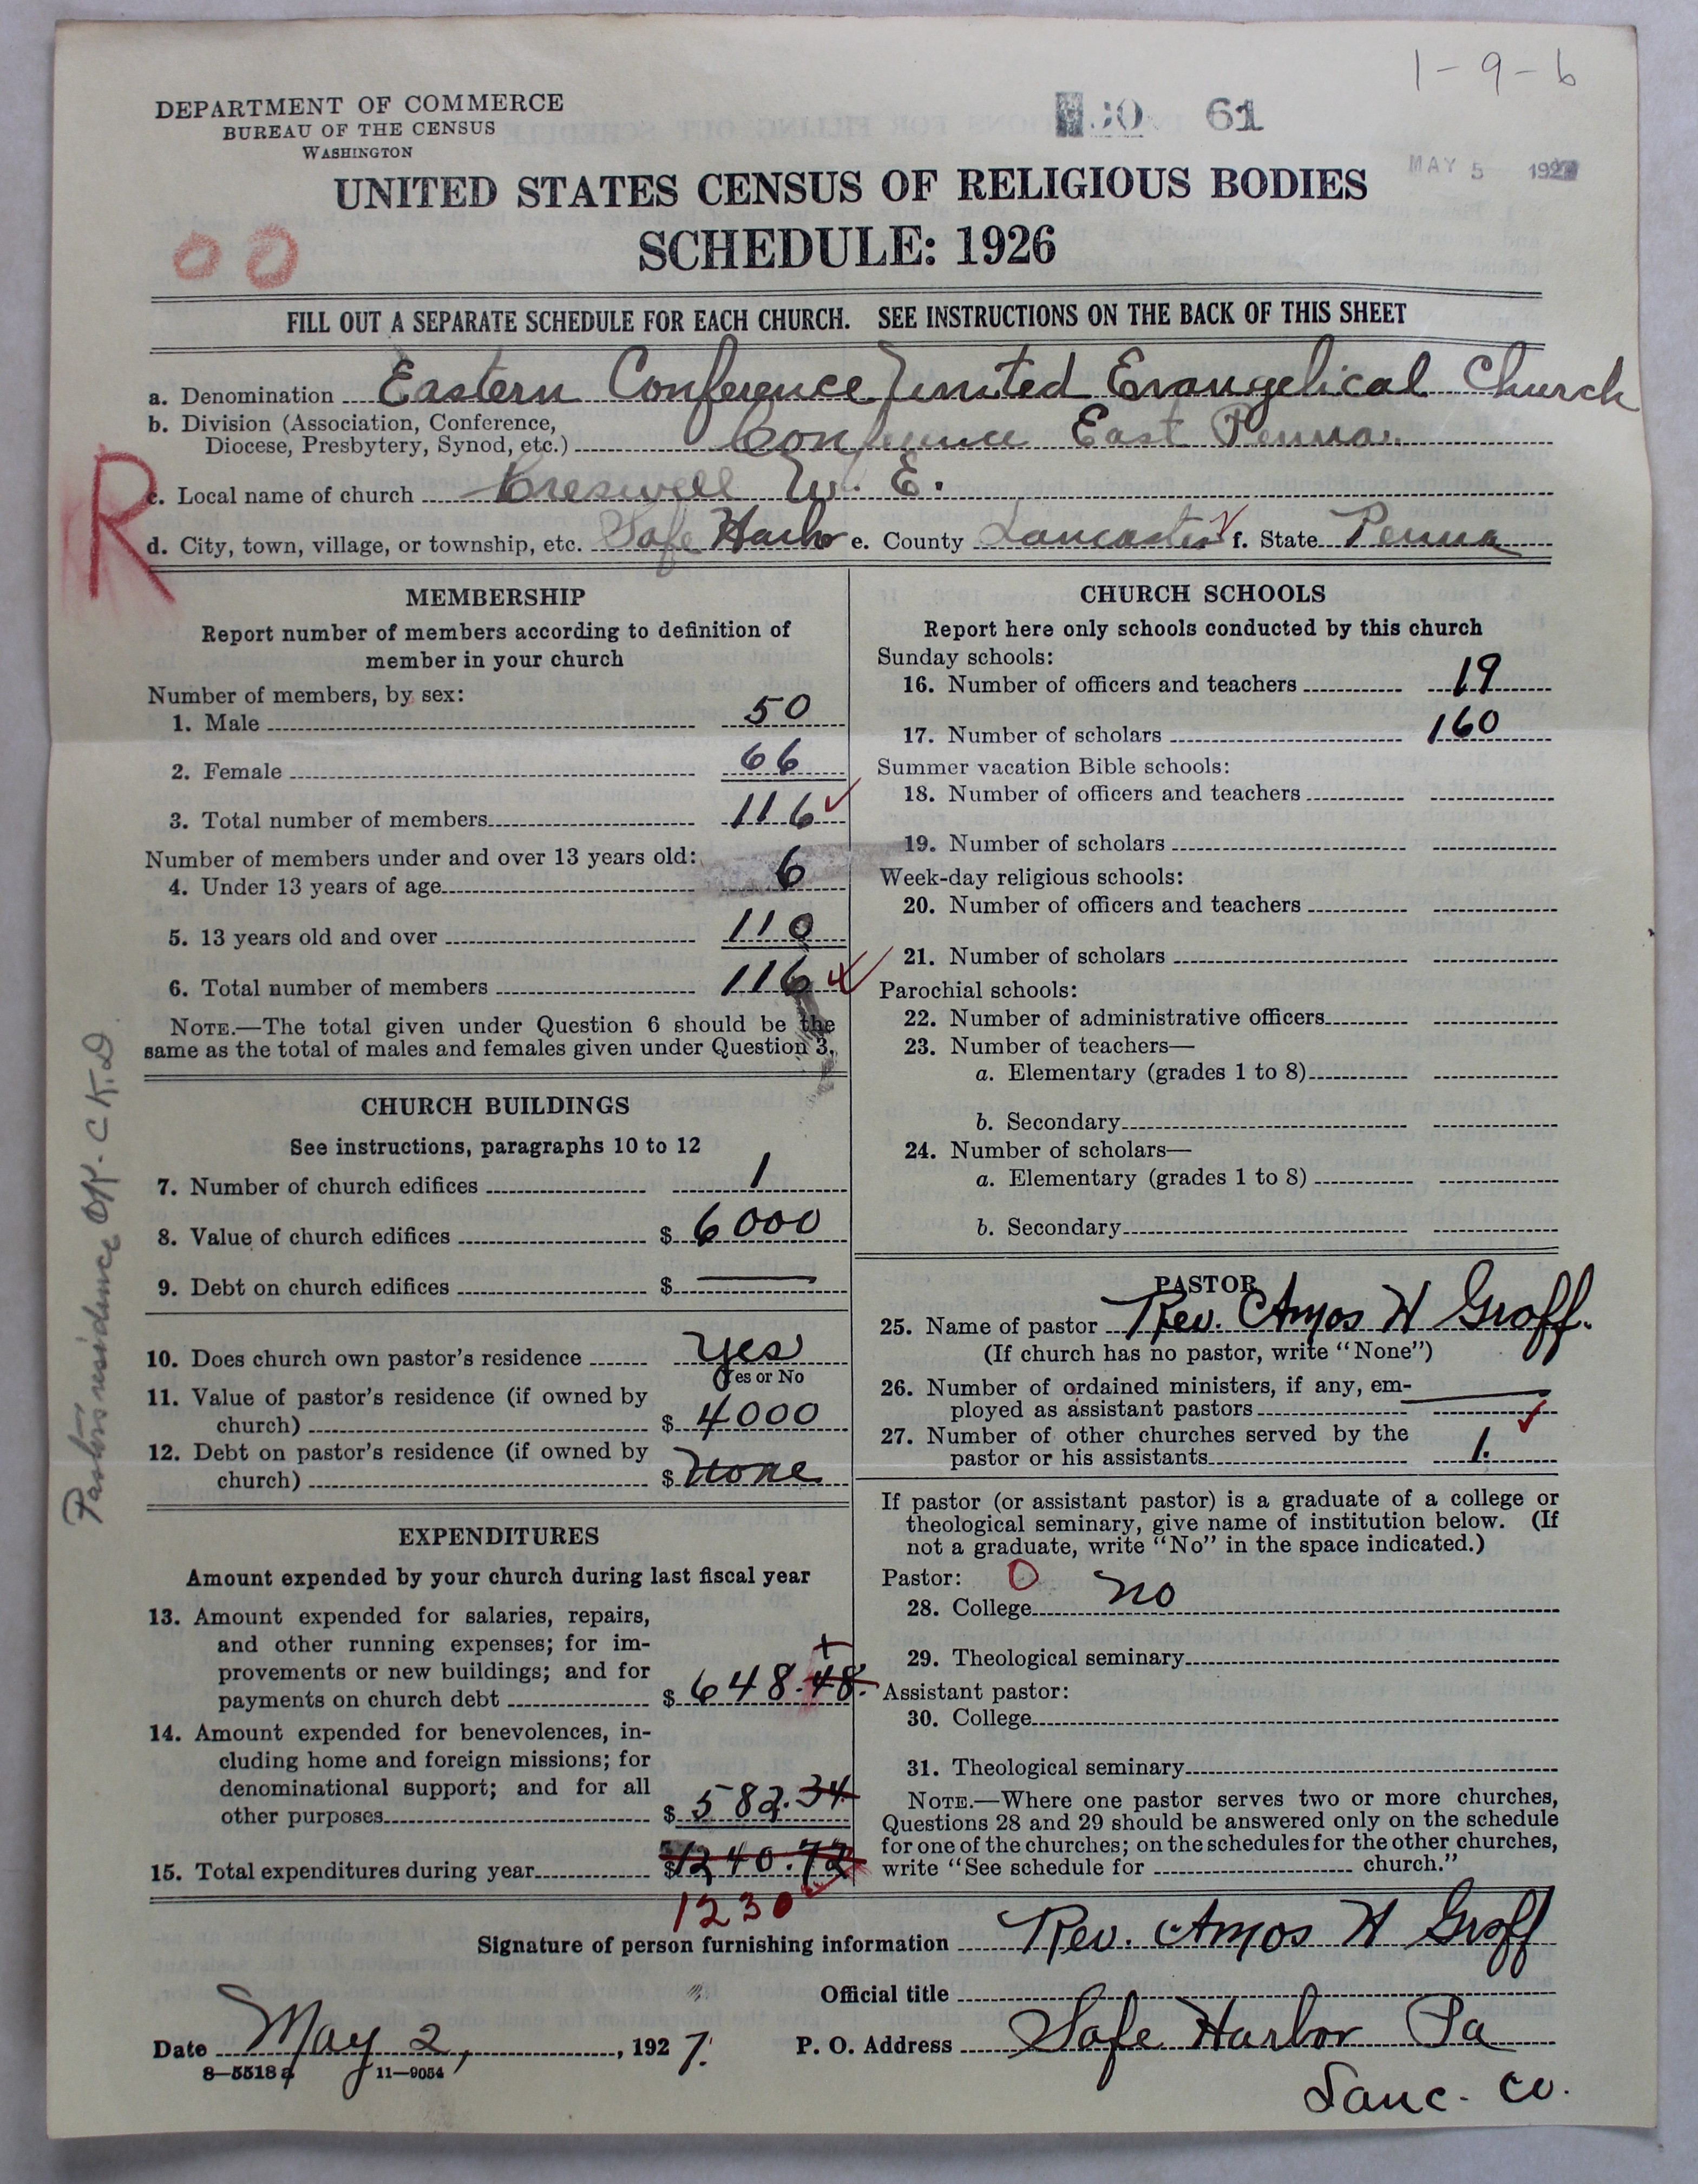 1-9-6
61
MAY 5 192
DEPARTMENT OF COMMERCE
BUREAU OF THE CENSUS
WASHINGTON
UNITED STATES CENSUS OF RELIGIOUS BODIES
SCHEDULE: 1926
00
FILL OUT A SEPARATE SCHEDULE FOR EACH CHURCH. SEE INSTRUCTIONS ON THE BACK OF THIS SHEET
a. Denomination Eastern Conference United Evangelical Church
b. Division (Association, Conference,
Diocese, Presbytery, Synod, etc.) Conference East Penna.
R
c. Local name of church Creswell U. E.
d. City, town, village, or township, etc. Safe Harbor e. County Lancaster f. State Penna
MEMBERSHIP
Report number of members according to definition of
member in your church
Number of members, by sex:
1. Male 50
2. Female 66
3. Total number of members 116
Number of members under and over 13 years old:
4. Under 13 years of age 6
5. 13 years old and over 110
6. Total number of members 116
NOTE.—The total given under Question 6 should be the
same as the total of males and females given under Question 3.
CHURCH BUILDINGS
See instructions, paragraphs 10 to 12
7. Number of church edifices 1
8. Value of church edifices $ 6000
9. Debt on church edifices $ —
10. Does church own pastor's residence yes
Yes or No
11. Value of pastor's residence (if owned by
church) $ 4000
12. Debt on pastor's residence (if owned by
church) $ None
Pastor's residence OK. C.K.D
EXPENDITURES
Amount expended by your church during last fiscal year
13. Amount expended for salaries, repairs,
and other running expenses; for im-
provements or new buildings; and for
payments on church debt $ 648.48
14. Amount expended for benevolences, in-
cluding home and foreign missions; for
denominational support; and for all
other purposes $ 582.34
15. Total expenditures during year $ 1240.72
1230
CHURCH SCHOOLS
Report here only schools conducted by this church
Sunday schools:
16. Number of officers and teachers 19
17. Number of scholars 160
Summer vacation Bible schools:
18. Number of officers and teachers
19. Number of scholars
Week-day religious schools:
20. Number of officers and teachers
21. Number of scholars
Parochial schools:
22. Number of administrative officers
23. Number of teachers—
a. Elementary (grades 1 to 8)
b. Secondary
24. Number of scholars—
a. Elementary (grades 1 to 8)
b. Secondary
PASTOR
25. Name of pastor Rev. Amos H Groff.
(If church has no pastor, write "None")
26. Number of ordained ministers, if any, em-
ployed as assistant pastors —
27. Number of other churches served by the
pastor or his assistants 1.
If pastor (or assistant pastor) is a graduate of a college or
theological seminary, give name of institution below. (If
not a graduate, write "No" in the space indicated.)
Pastor: 0
28. College no
29. Theological seminary
Assistant pastor:
30. College
31. Theological seminary
NOTE.—Where one pastor serves two or more churches,
Questions 28 and 29 should be answered only on the schedule
for one of the churches; on the schedules for the other churches,
write "See schedule for church."
Signature of person furnishing information Rev. Amos H Groff
Official title
Date May 2, 1927. P. O. Address Safe Harbor Pa
8-5518 a 11-9054
Lanc. Co.